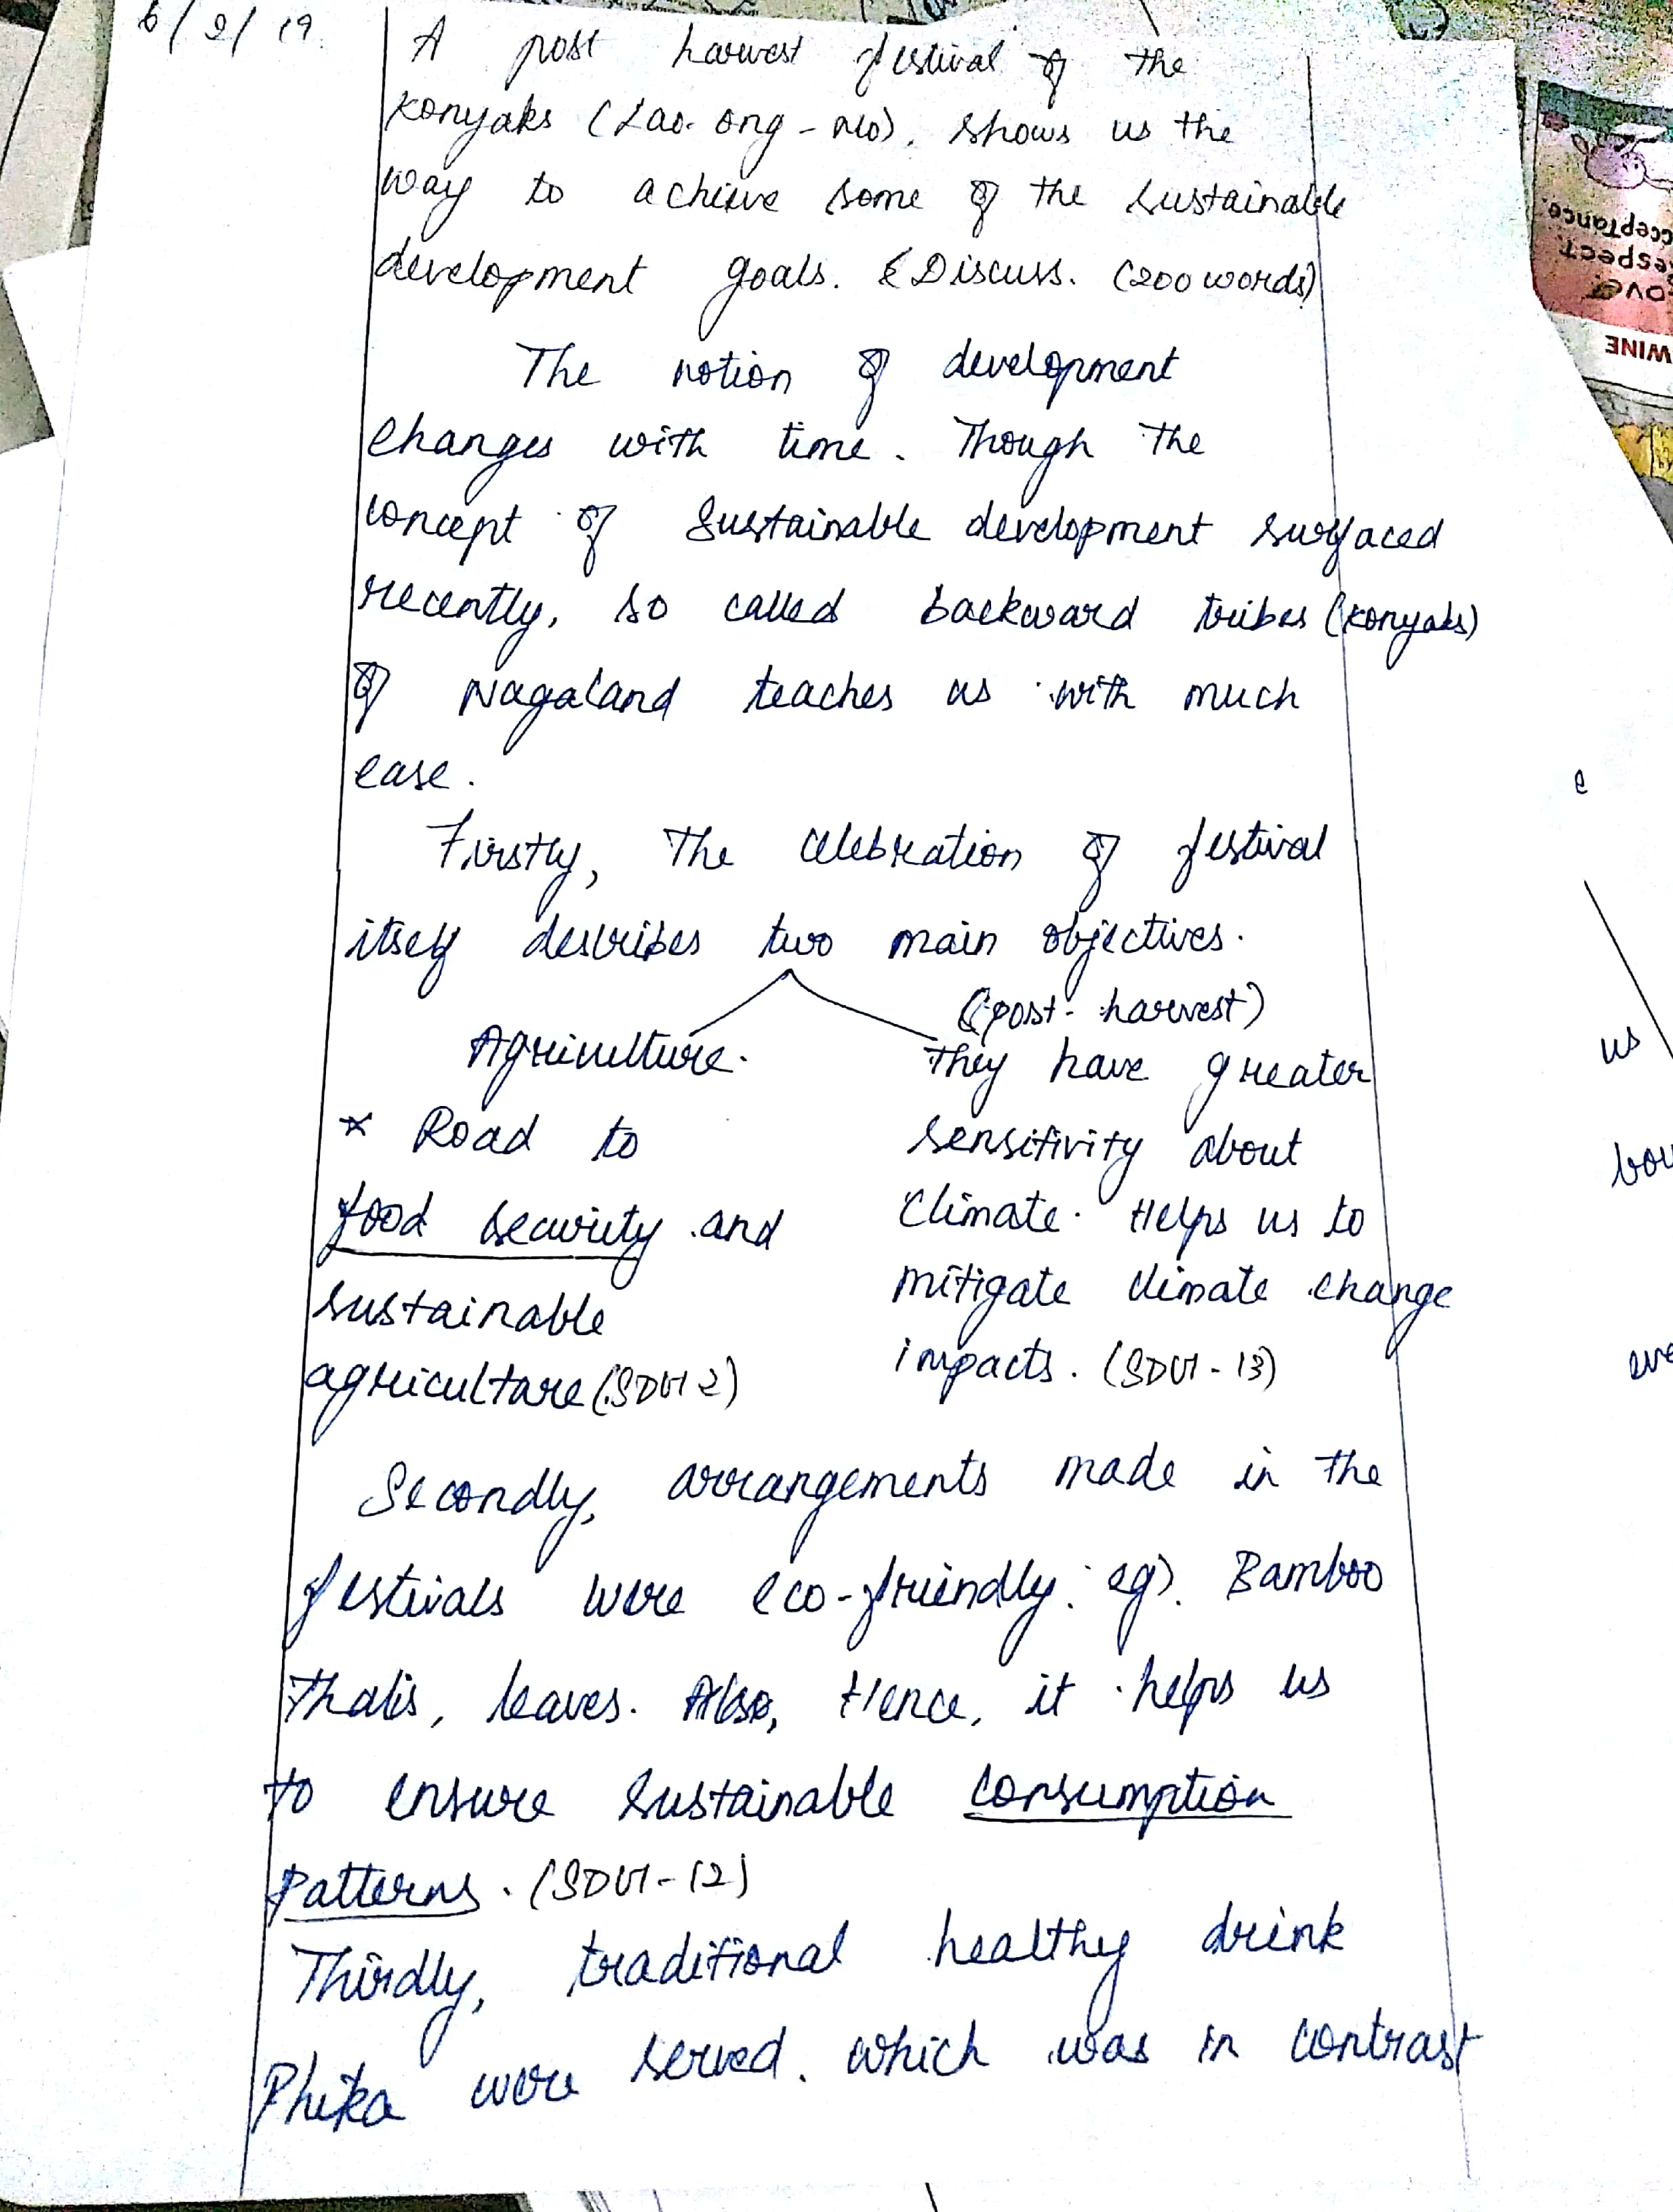 6/9/19.
A post harvest festival of the
Konyaks (Lao-ong-mo), shows us the
way to achieve some of the sustainable
development goals. Discuss. (200 words)
The notion of development
changes with time. Though the
concept of Sustainable development surfaced
recently, so called backward tribes (Konyaks)
of Nagaland teaches us with much
ease.
Firstly, The celebration of festival
itself describes two main objectives.
(post-harvest)
Agriculture.
* Road to
food security and
sustainable
agriculture (SDG 2)
They have greater
sensitivity about
Climate. Helps us to
mitigate climate change
impacts. (SDG-13)
Secondly, arrangements made in the
festivals were eco-friendly. eg). Bamboo
Thalis, leaves. Also, Hence, it helps us
to ensure sustainable consumption
Patterns. (SDG-12)
Thirdly, traditional healthy drink
Phika were served. which was in contrast
cceptance.
espect.
ove.
WINE
e
us
bou
eve